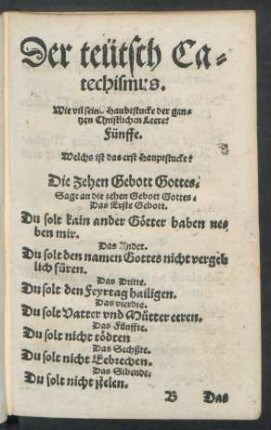 Der teütsch Ca-
techismus.
Wie vil sein Haubtstucke der gan-
tzen Christlichen Leere?
Fünffe.
Welchs ist das erst Hauptstucke?
Die Zehen Gebott Gottes.
Sagt an die zehen Gebott Gottes.
Das Erste Gebott.
Du solt kain ander Götter haben ne-
ben mir.
Das Ander.
Du solt den namen Gottes nicht vergeb
lich füren.
Das Dritte.
Du solt den Feyrtag hailigen.
Das vierdte.
Du solt Vatter vnd Mütter eeren.
Das Fünffte.
Du solt nicht tödten
Das Sechßte.
Du solt nicht Eebrechen.
Das Sibende.
Du solt nicht stelen.
B Das